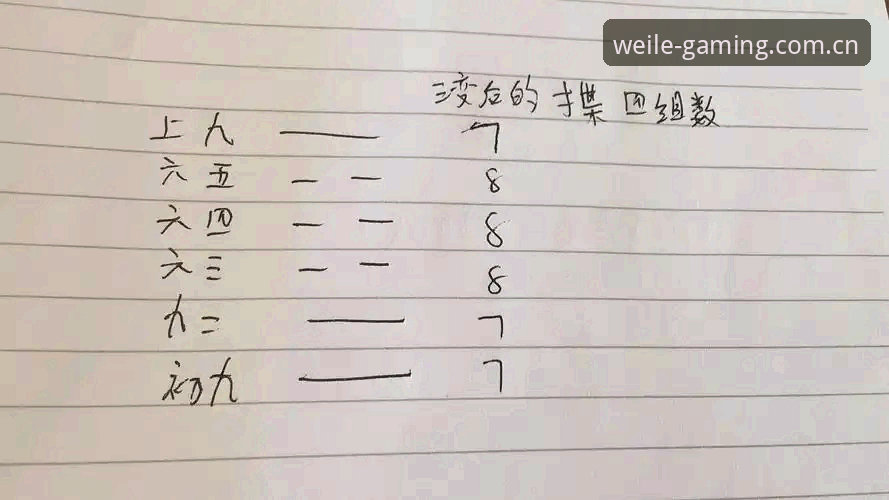 weile-gaming.com.cn
三变后的揲四组数
上九 7
六五 8
六四 8
六三 8
九二 7
初九 7